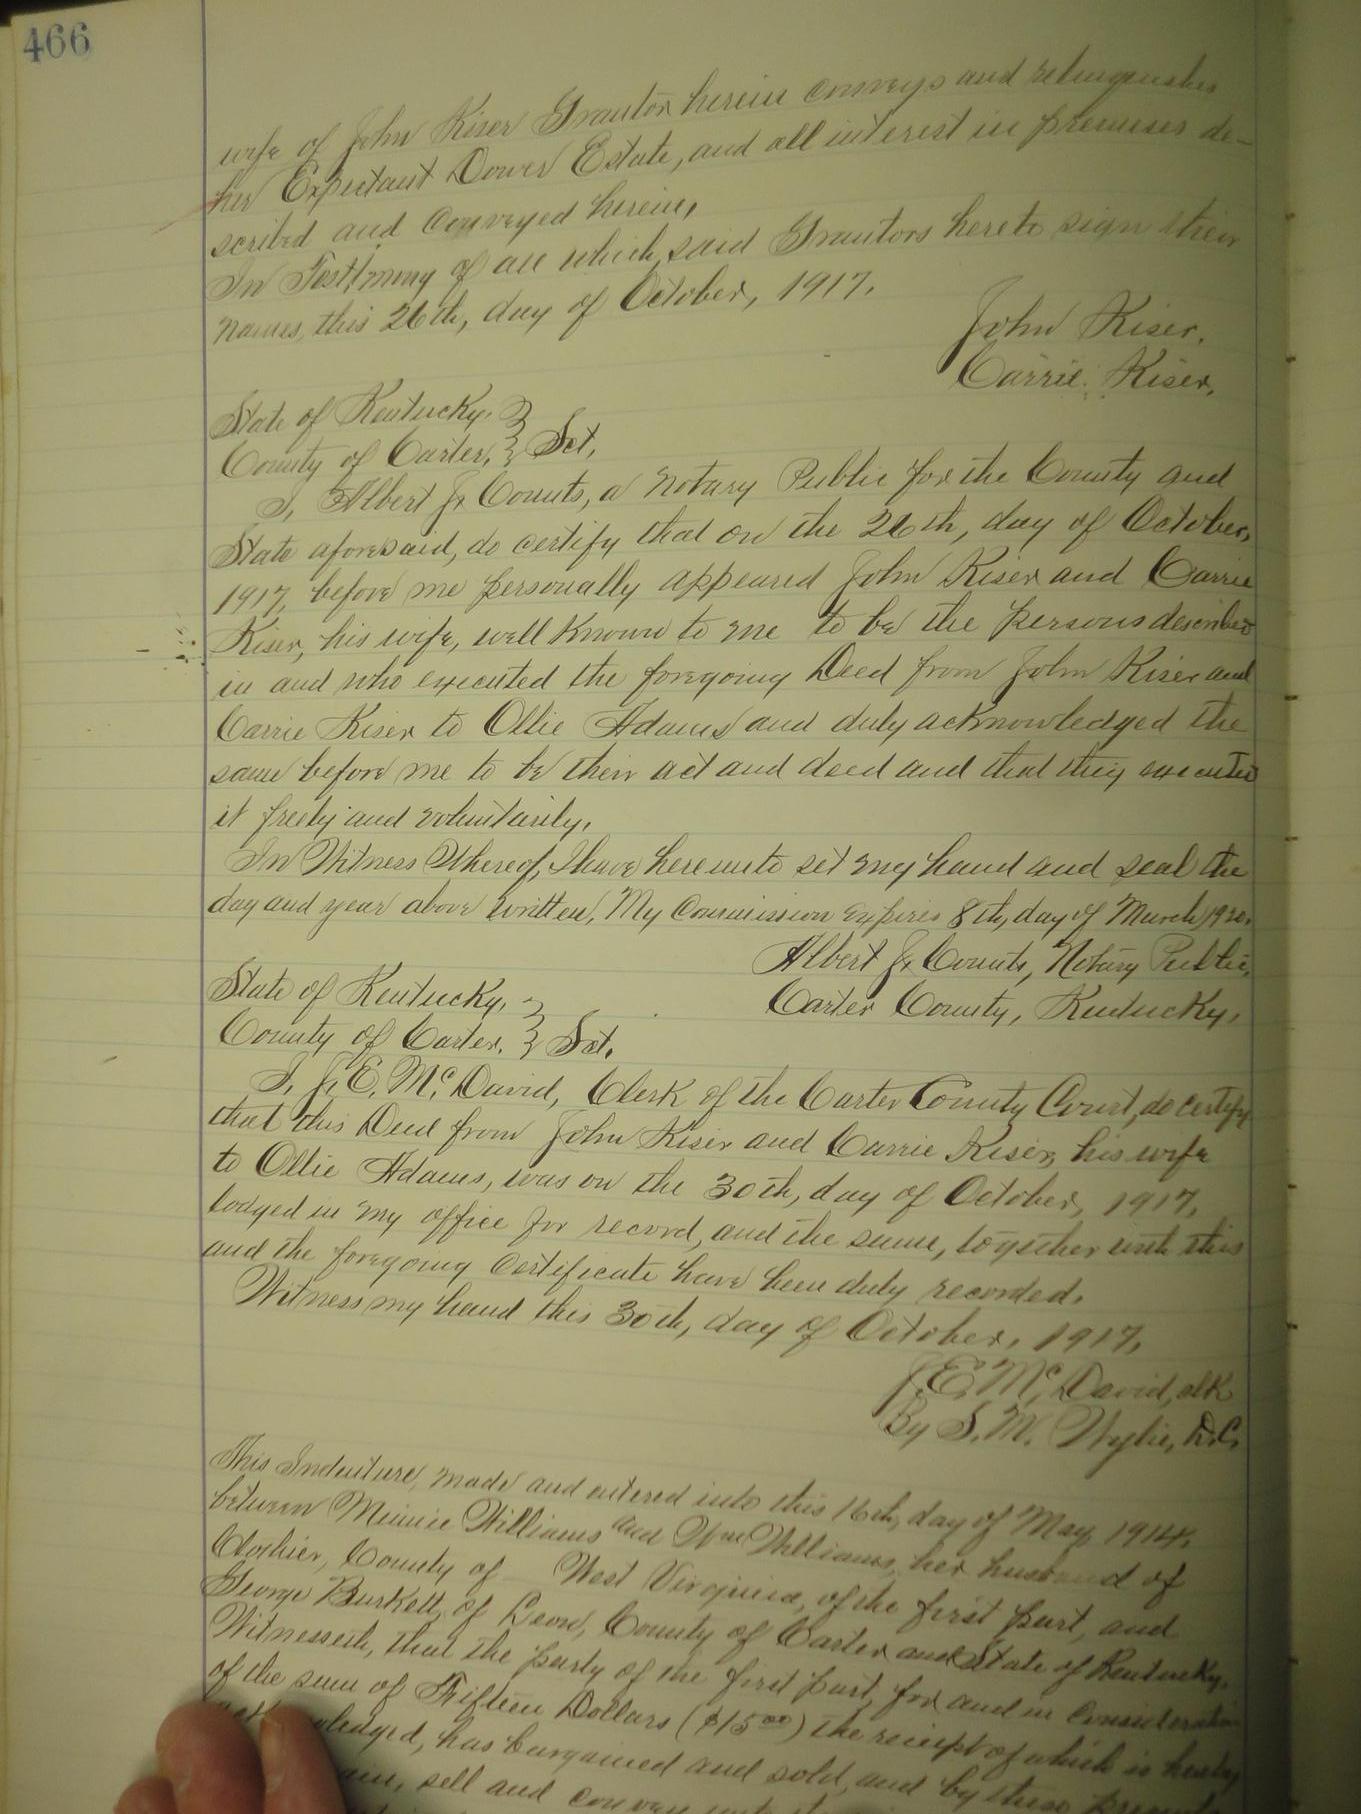 466
wife of John Kiser Grantor herein conveys and relinquishes
her Expectant Dower Estate, and all interest in premises de-
scribed and conveyed herein,
In Testimony of all which, said Grantors hereto sign their
names, this 26th, day of October, 1917.
John Kiser.
Carrie Kiser.
State of Kentucky,
County of Carter, } Sct.
I, Albert J. Counts, a Notary Public for the County and
State aforesaid, do certify that on the 26th, day of October,
1917, before me personally appeared John Kiser and Carrie
Kiser, his wife, well known to me to be the persons described
in and who executed the foregoing Deed from John Kiser and
Carrie Kiser to Ollie Adams and duly acknowledged the
same before me to be their act and deed and that they executed
it freely and voluntarily.
In Witness Whereof, I have hereunto set my hand and seal the
day and year above written. My Commission Expires 8th, day of March 1920.
Albert J. Counts, Notary Public,
Carter County, Kentucky.
State of Kentucky,
County of Carter. } Sct.
I, J. E. McDavid, Clerk of the Carter County Court, do certify
that this Deed from John Kiser and Carrie Kiser, his wife
to Ollie Adams, was on the 30th, day of October, 1917,
lodged in my office for record, and the same, together with this
and the foregoing certificate have been duly recorded.
Witness my hand this 30th, day of October, 1917.
J. E. McDavid, clk
By S. M. Wylie, D.C.
This Indenture, made and entered into this 16th, day of May, 1914.
between Minnie Williams and Wm Williams, her husband of
County of West Virginia, of the first part, and
George Burkett, of Leon, County of Carter and State of Kentucky.
Witnesseth, that the party of the first part, for and in consideration
of the sum of Fifteen Dollars ($15.00) the receipt of which is hereby
has bargained and sold, and by these presents
sell and convey unto